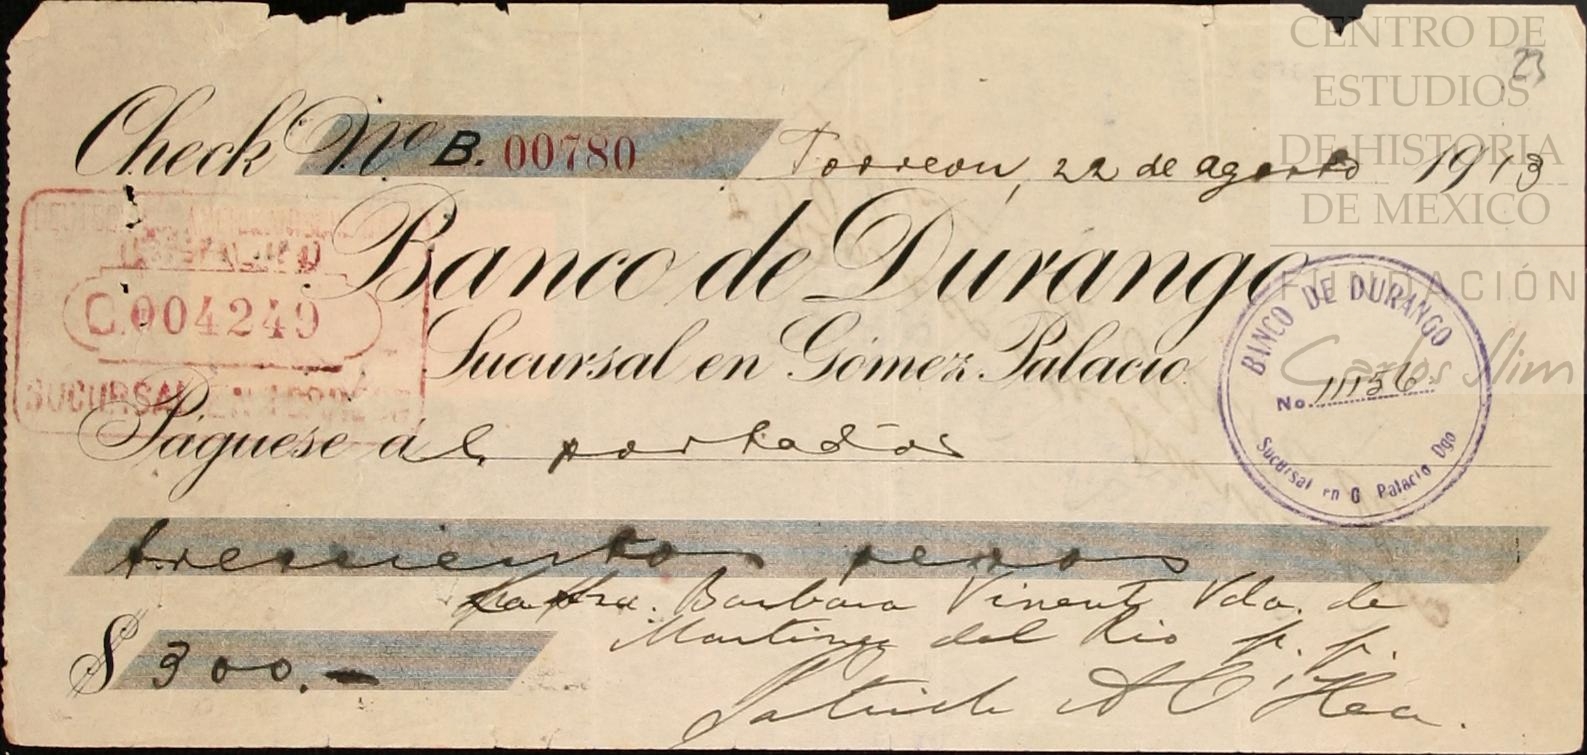 CENTRO DE
ESTUDIOS
DE HISTORIA
DE MEXICO
FUNDACIÓN
Carlos Slim
23
Check Nº B. 00780
Torreon, 22 de agosto 1913
Banco de Durango
Sucursal en Gómez Palacio.
C.004249
SUCURSAL EN TORREON
BANCO DE DURANGO
No. 11156
Sucursal en G Palacio Dgo
Páguese ál portador
trescientos pesos
Barbara Vinent Vda. de
Martinez del Rio p. p.
$ 300.-
Patrick A O'Hea.